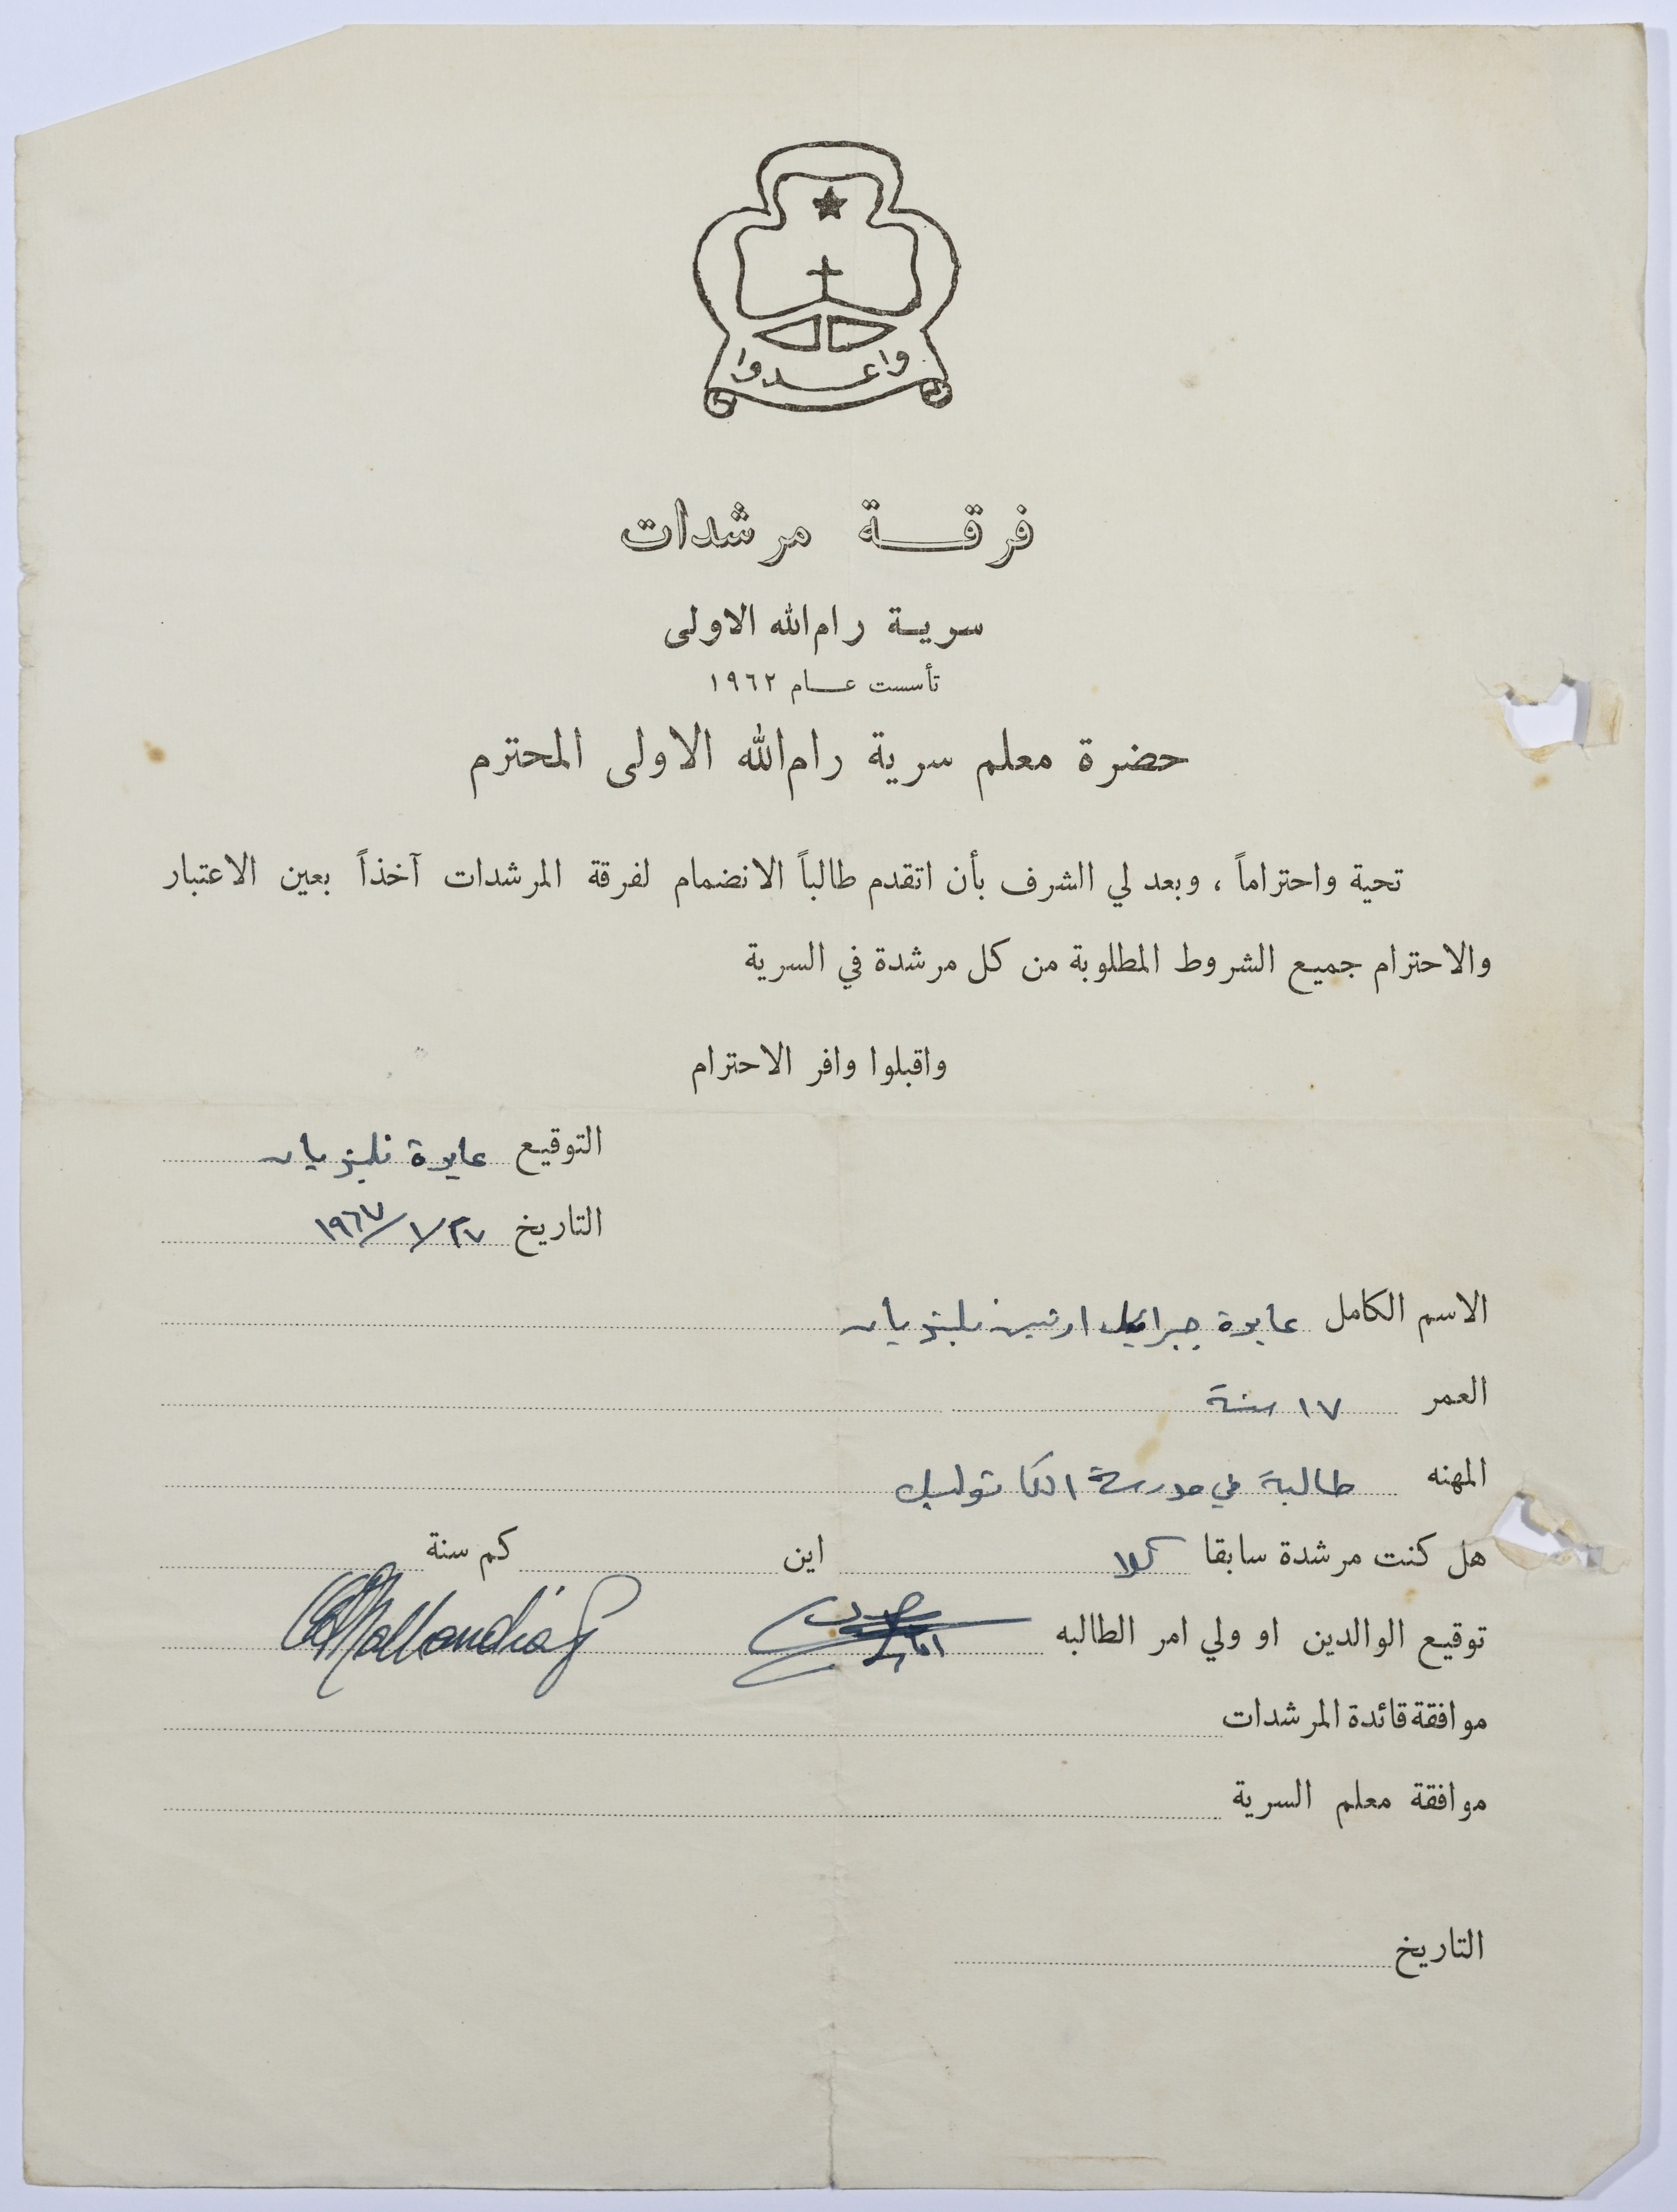 واعدوا
فرقة مرشدات
سرية رام الله الاولى
تأسست عام ١٩٦٢
حضرة معلم سرية رام الله الاولى المحترم
تحية واحتراماً ، وبعد لي الشرف بأن اتقدم طالباً الانضمام لفرقة المرشدات آخذاً بعين الاعتبار
والاحترام جميع الشروط المطلوبة من كل مرشدة في السرية
واقبلوا وافر الاحترام
التوقيع عايدة
التاريخ ٢٧/١/١٩٦٧
الاسم الكامل عايدة جبرائيل
العمر ١٧ سنة
المهنه طالبة في مدرسة الكاثوليك
هل كنت مرشدة سابقا كلا اين كم سنة
توقيع الوالدين او ولي امر الطالبه
موافقة قائدة المرشدات
موافقة معلم السرية
التاريخ